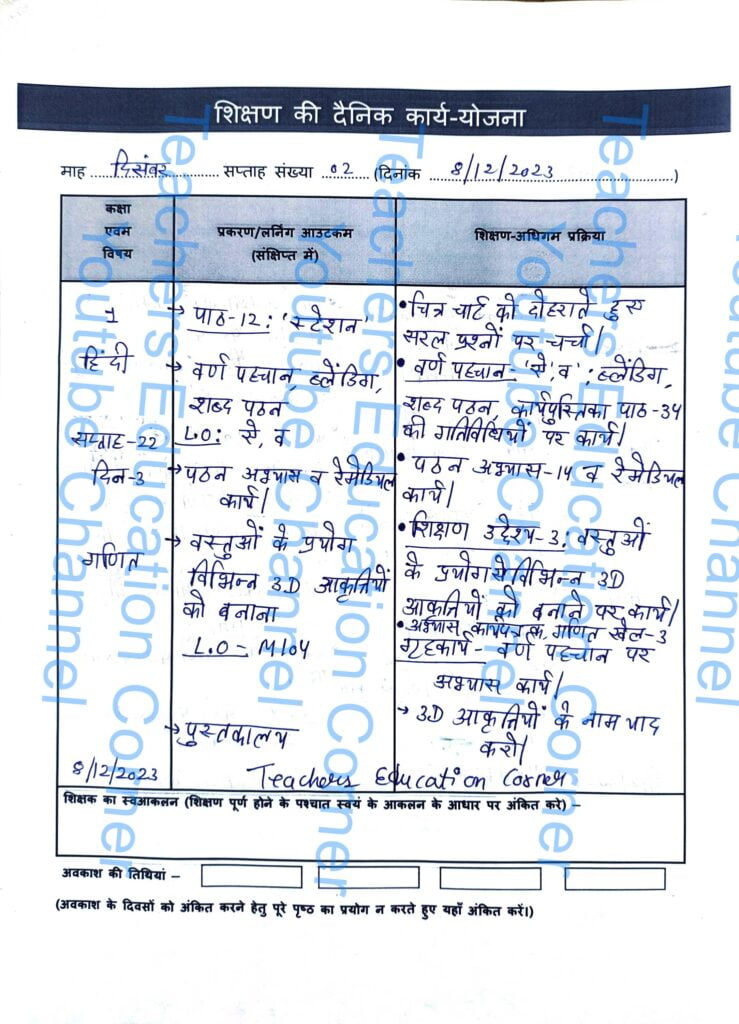 शिक्षण की दैनिक कार्य-योजना
माह दिसंबर सप्ताह संख्या 02 (दिनांक 8/12/2023)
कक्षा
एवम
विषय
प्रकरण/लर्निंग आउटकम
(संक्षिप्त में)
शिक्षण-अधिगम प्रक्रिया
1
हिंदी
सप्ताह-22
दिन-3
गणित
8/12/2023
→ पाठ-12: 'स्टेशन'
→ वर्ण पहचान, ब्लेंडिंग,
शब्द पठन
LO: से, व
→ पठन अभ्यास व रेमेडियल
कार्य।
→ वस्तुओं के प्रयोग
विभिन्न 3D आकृतियों
को बनाना
L.O - M104
→ पुस्तकालय
• चित्र चार्ट को दोहराते हुए
सरल प्रश्नों पर चर्चा।
• वर्ण पहचान - 'से, व'; ब्लेंडिंग,
शब्द पठन, कार्यपुस्तिका पाठ-34
की गतिविधियों पर कार्य।
• पठन अभ्यास-14 व रेमेडियल
कार्य।
• शिक्षण उद्देश्य-3: वस्तुओं
के प्रयोग से विभिन्न 3D
आकृतियों को बनाने पर कार्य।
• अभ्यास कार्यपत्रक, गणित खेल-3
गृहकार्य - वर्ण पहचान पर
अभ्यास कार्य।
→ 3D आकृतियों के नाम याद
करो।
Teachers Education Corner
शिक्षक का स्वआकलन (शिक्षण पूर्ण होने के पश्चात स्वयं के आकलन के आधार पर अंकित करे) –
अवकाश की तिथियां –
(अवकाश के दिवसों को अंकित करने हेतु पूरे पृष्ठ का प्रयोग न करते हुए यहाँ अंकित करें।)
Teachers Education Corner
Youtube Channel
Teachers Education Corner
Youtube Channel
Teachers Education Corner
Youtube Channel